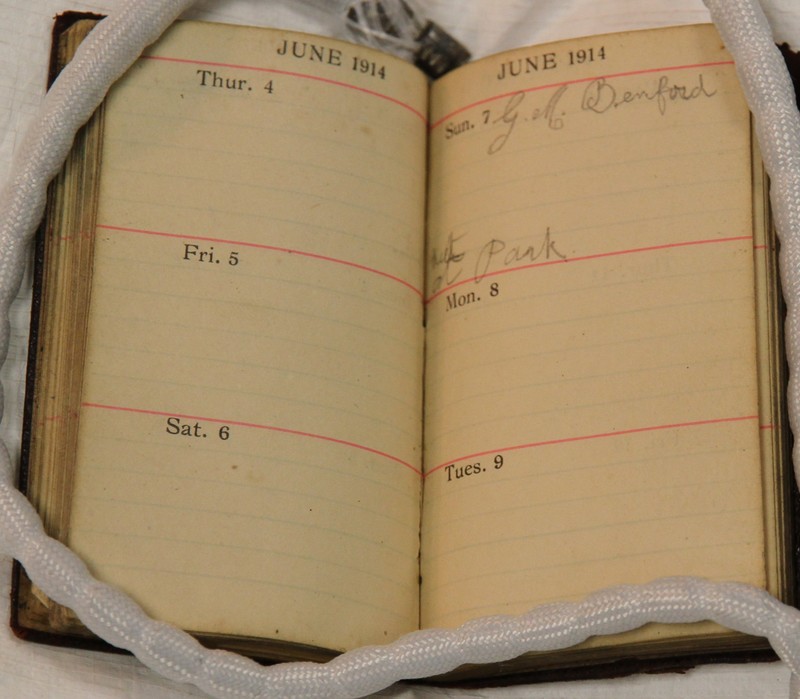 JUNE 1914
Thur. 4
Fri. 5
Sat. 6
JUNE 1914
Sun. 7 G. M. Benford
at Park
Mon. 8
Tues. 9